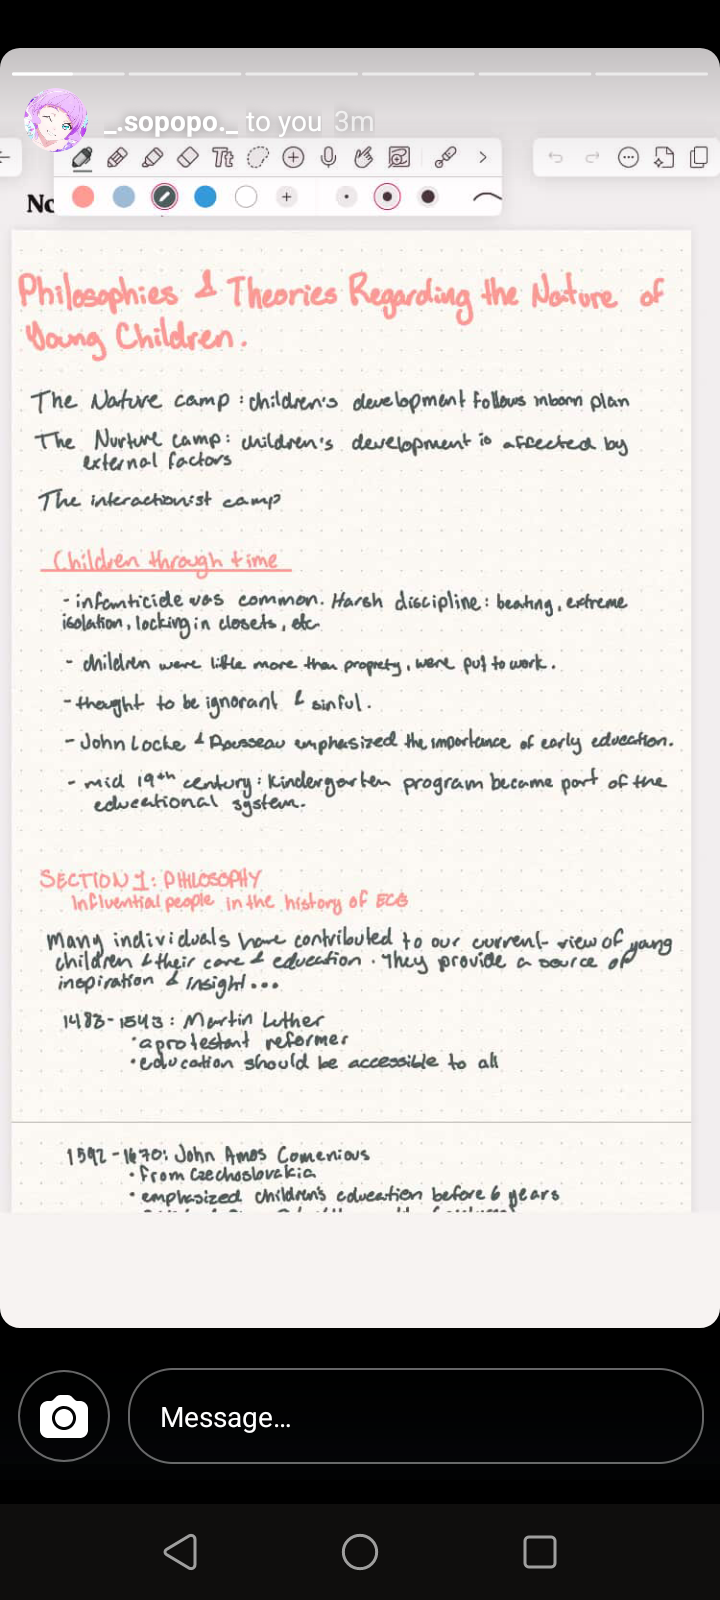 _.sopopo._ to you 3m
Tt
No
Philosophies & Theories Regarding the Nature of
Young Children.
The Nature camp : children's development follows inborn plan
The Nurture camp: children's development is affected by
external factors
The interactionist camp
Children through time
- infanticide was common. Harsh discipline: beating, extreme
isolation, locking in closets, etc
- children were little more than proprety, were put to work.
- thought to be ignorant & sinful.
- John Locke & Rousseau emphasized the importance of early education.
- mid 19th century: Kindergarten program became part of the
educational system.
SECTION 1: PHILOSOPHY
Influential people in the history of
Many individuals have contributed to our current view of young
children & their care & education. They provide a source of
inspiration & insight...
1483-1543: Martin Luther
• a protestant reformer
• education should be accessible to all
1592-1670: John Amos Comenious
• from Czechoslovakia
• emphasized children's education before 6 years
Message...